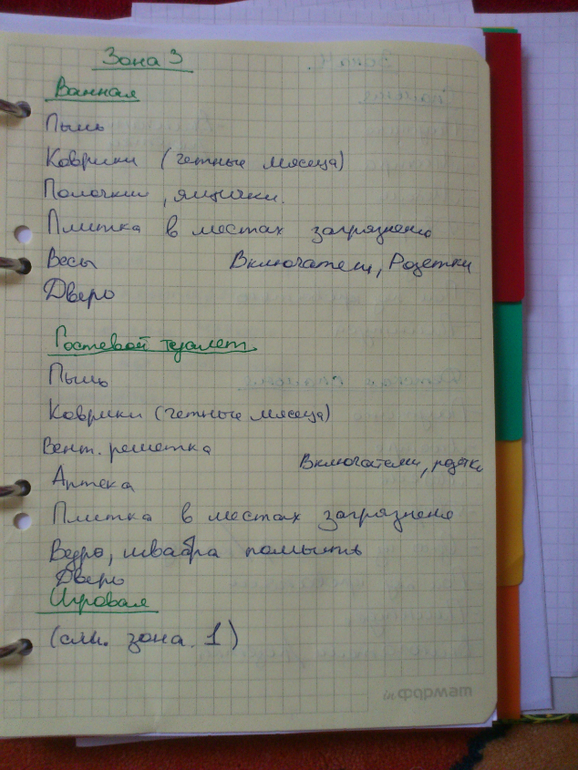 Зона 3
Ванная
Пыль
Коврики (четные месяца)
Полочки, ящички.
Плитка в местах загрязнено
Весы Включатели, Розетки
Дверь
Гостевой туалет
Пыль
Коврики (четные месяца)
Вент. решетка
Включатели, розетки
Аптека
Плитка в местах загрязнено
Ведро, швабра помыть
Дверь
Игровая
(см. зона 1)
inФОРМАТ